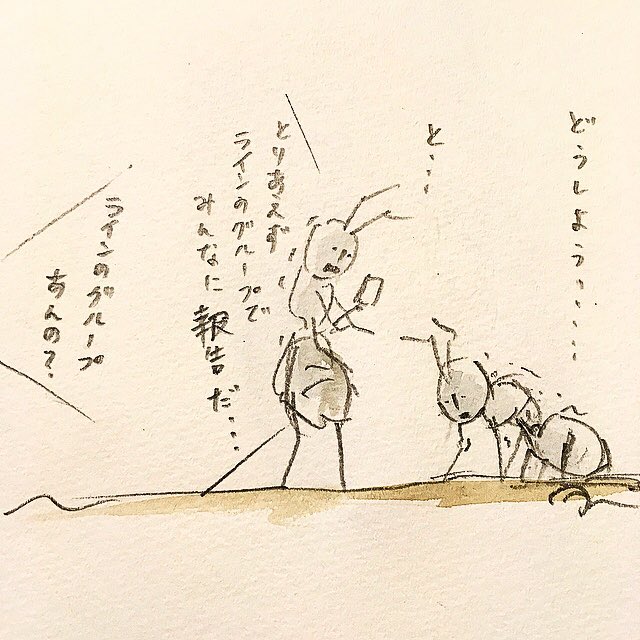 どうしよう・・・・
と・・・
とりあえず
ラインのグループで
みんなに報告だ・・・
ラインのグループ
あんの？